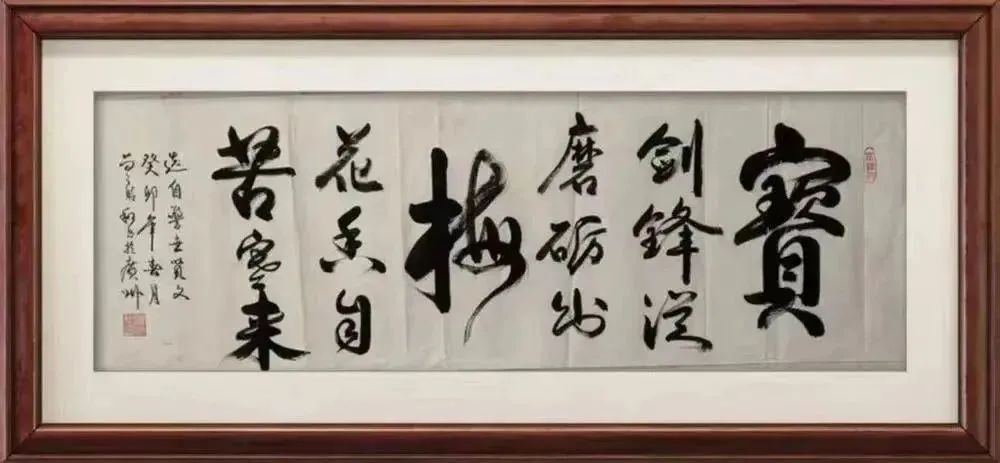 寶
劍鋒從
磨礪出
梅
花香自
苦寒来
选自警世贤文
癸卯年春月
书於廣州